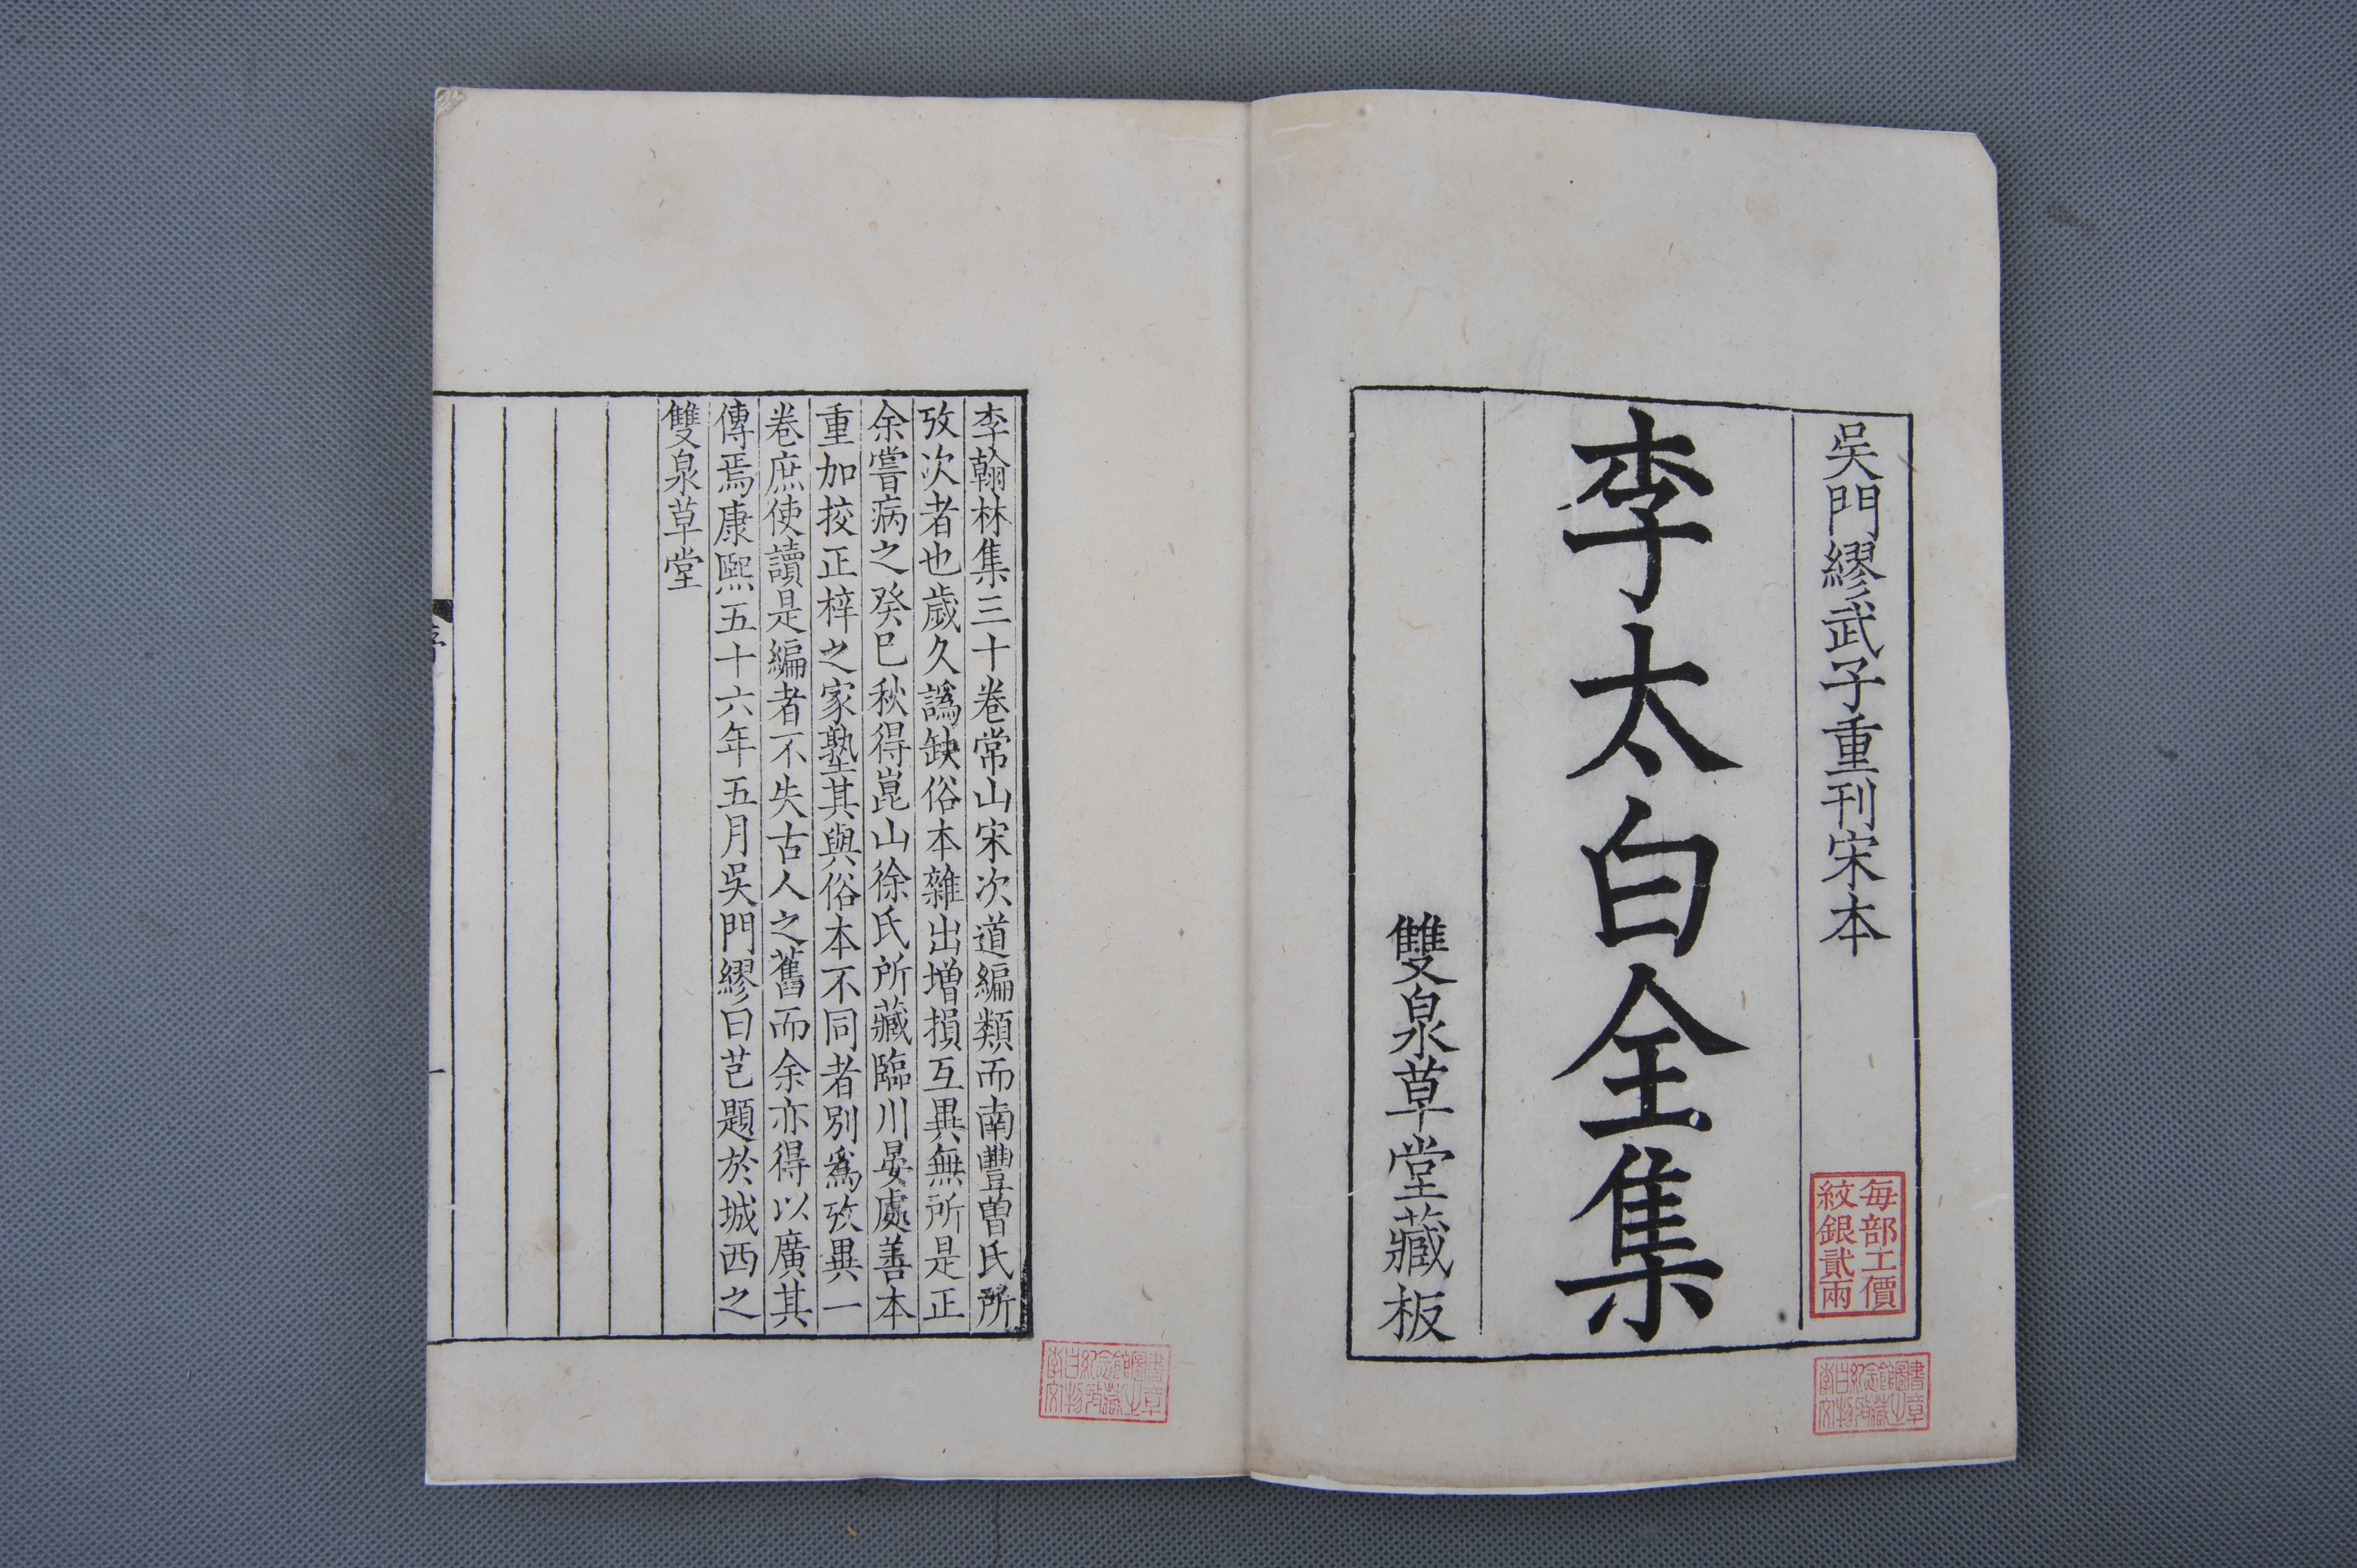 吳門繆武子重刊宋本
李太白全集
雙泉草堂藏板
每部工價
紋銀貳兩
李翰林集三十卷常山宋次道編類而南豐曾氏所
攷次者也歲久譌缺俗本雜出增損互異無所是正
余嘗病之癸巳秋得崑山徐氏所藏臨川晏處善本
重加挍正梓之家塾其與俗本不同者別爲攷異一
卷庶使讀是編者不失古人之舊而余亦得以廣其
傳焉康熙五十六年五月吳門繆曰芑題於城西之
雙泉草堂
一
李白紀念館圖書
文物收藏之章
李白紀念館圖書
文物收藏之章